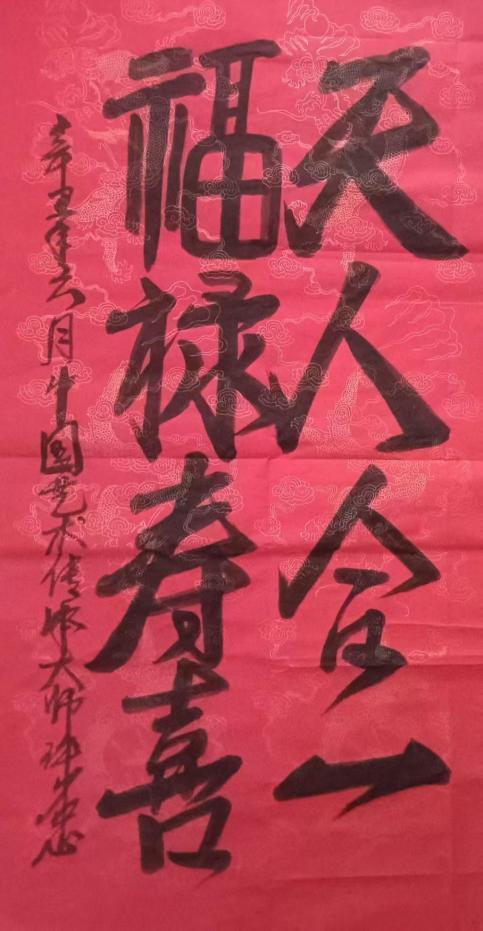 天人合一
福禄寿喜
辛丑年六月中国艺术传承大师